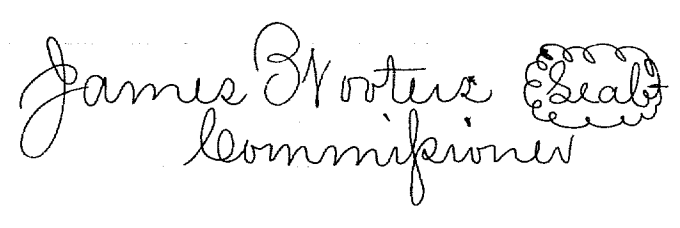 James B Nooters Seal
Commiſsioner